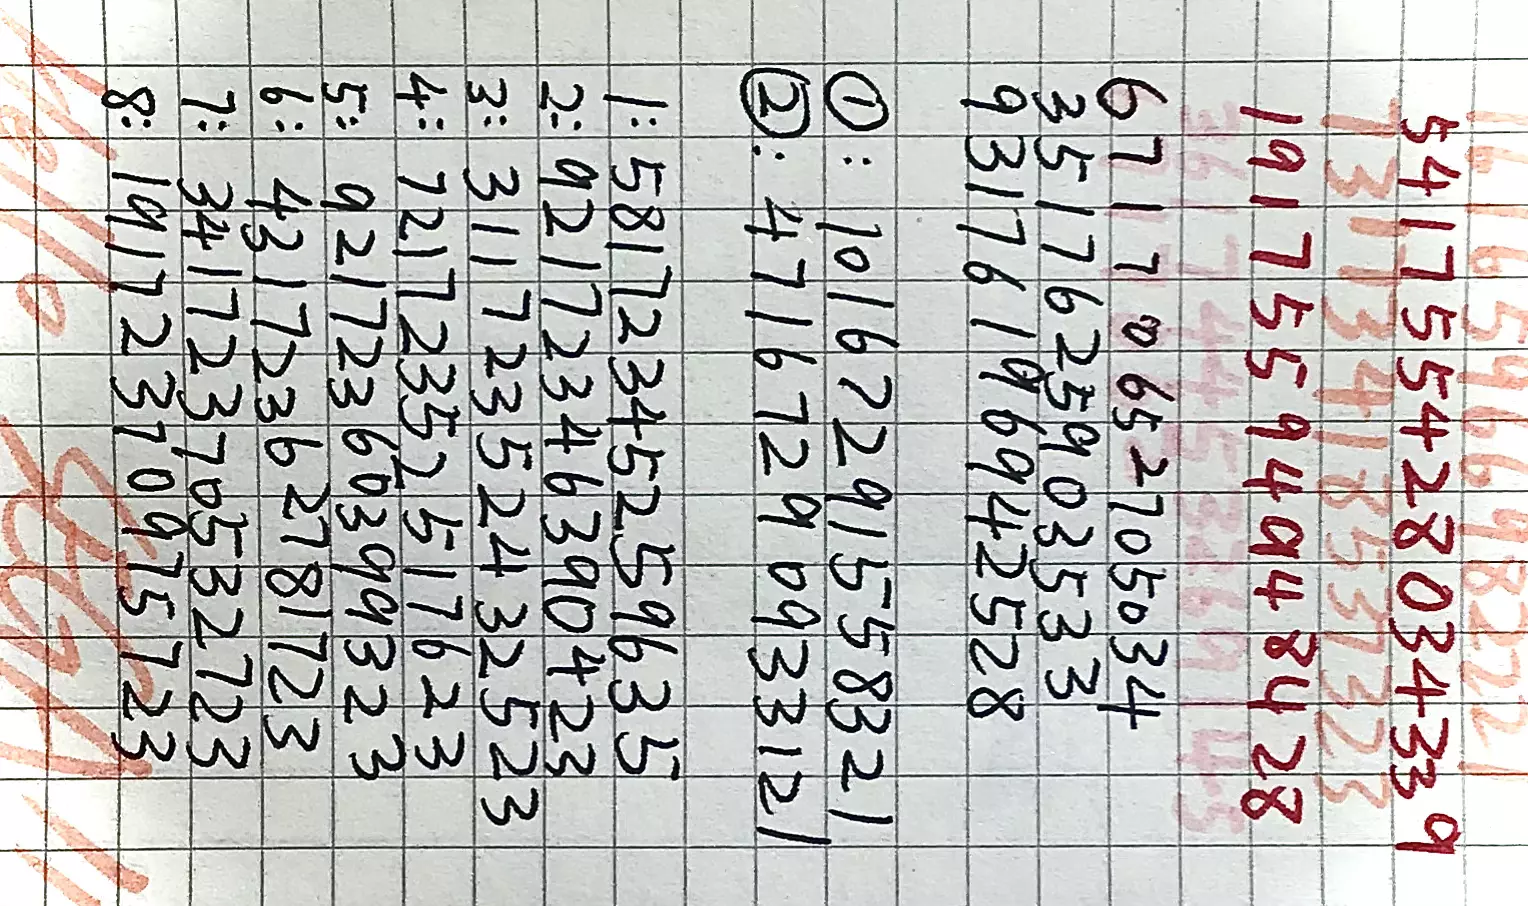 541755428034339
73173418537323
19175594948428
67170652705034
3517625903533
93176196942528
①: 10167291558321
②: 47167290933121
1: 58172345259635
2: 92172346390423
3: 31172352432523
4: 72172352517623
5: 92172360399323
6: 43172362781723
7: 34172370532723
8: 19172370975723
Hello